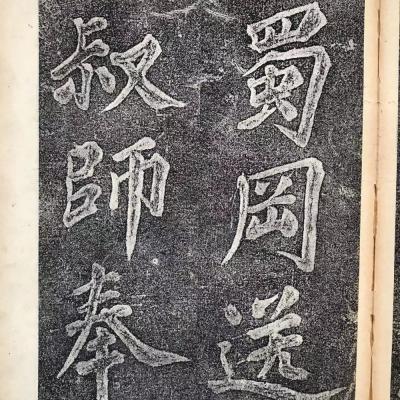 蜀岡送
叔師奉